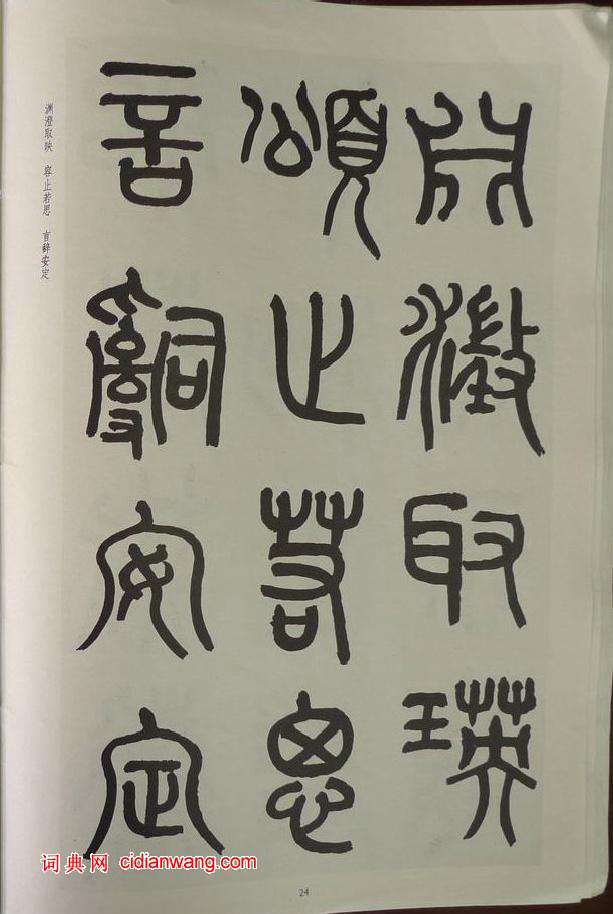 淵澂取瑛
頌止若思
言辭安定
淵澄取映 容止若思 言辭安定
24
词典网 cidianwang.com